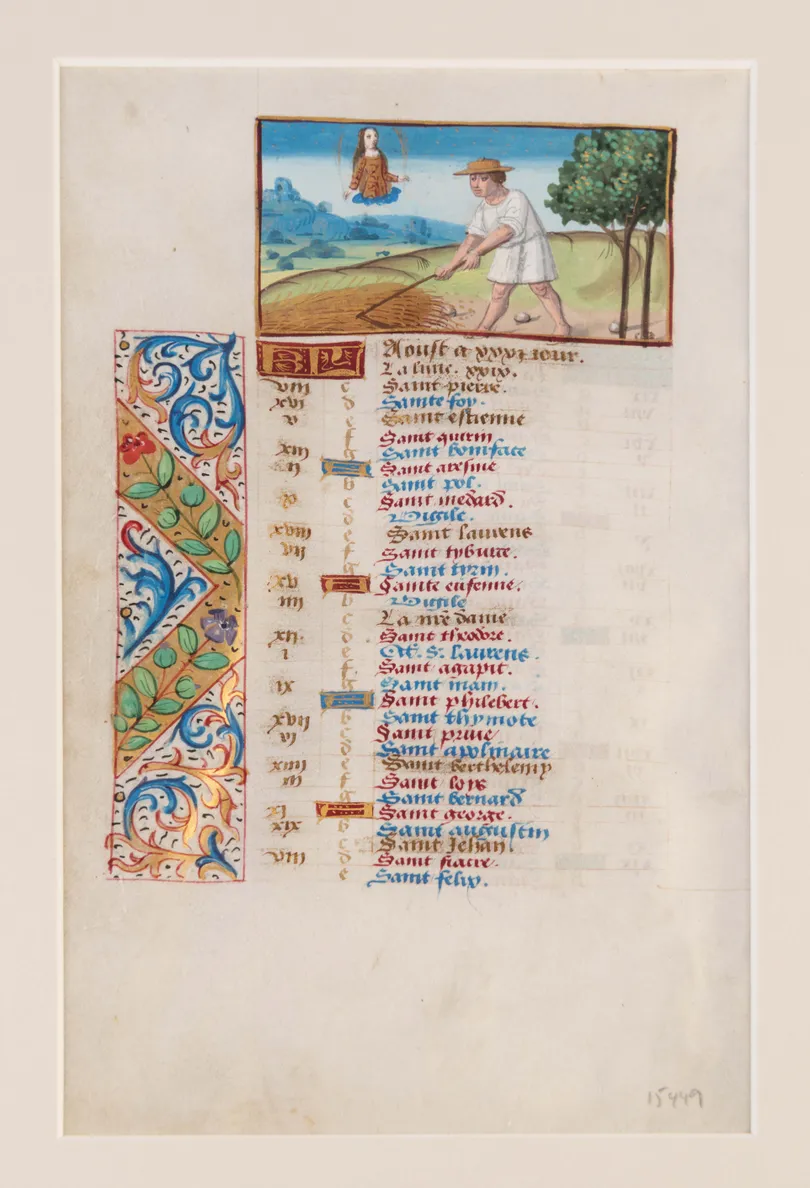 KL Aoust a xxxi iour.
La lune. xxix.
viii c Saint pierre.
xvi d Sainte foy.
v Saint estienne
f Saint quirin
xiii g Saint boniface
ii A Saint
b Saint pol.
x c Saint medard.
d Vigile.
xviii e Saint laurens
vii f Saint tyburce.
g Saint turin
xv A Sainte eufenne.
iiii b Vigile
c La nre dame
xii d Saint theodore.
i e Oct. S. laurens.
f Saint agapit.
ix g Saint mam.
A Saint philebert.
xvii b Saint thymote
vi c Saint priue
d Saint apolinaire
xiiii e Saint berthelemy
iii f Saint loys
g Saint bernard
xi A Saint george.
xix b Saint augustin
c Saint Jehan.
viii d Saint fiacre.
e Saint felix.
15449